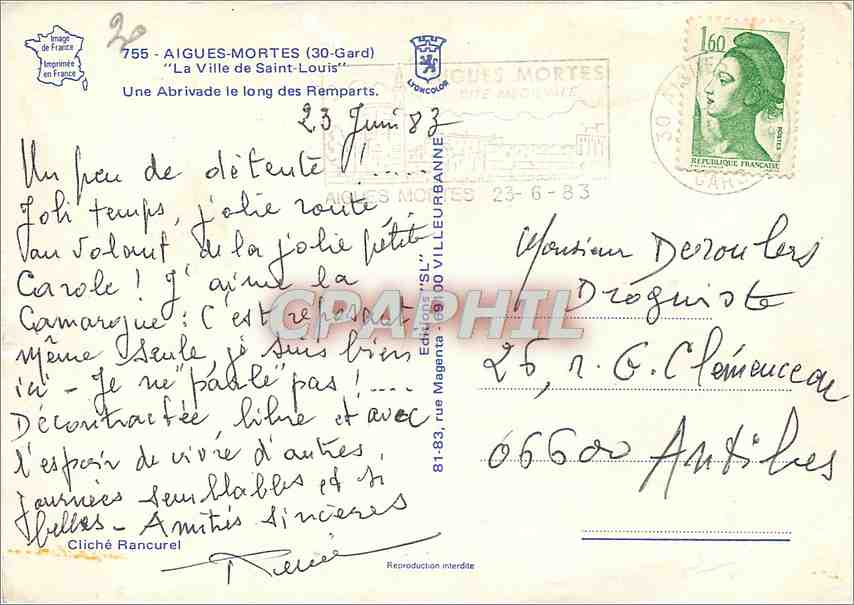 Image
de France
Imprimée
en France
20
755 - AIGUES-MORTES (30-Gard)
"La Ville de Saint-Louis"
Une Abrivade le long des Remparts.
LYONCOLOR
AIGUES MORTES
CITE MEDIEVALE
AIGUES MORTES 23-6-83
1,60
POSTES
REPUBLIQUE FRANÇAISE
30
GARD
23 Juin 83
Un peu de détente !....
Joli temps, jolie route,
au volant de la jolie petite
Carole ! J'aime la
Camargue : C'est reposant,
même seule, je suis bien
ici - Je ne "parle" pas !....
Décontractée, libre et avec
l'espoir de vivre d'autres
journées semblables et si
belles - Amitiés sincères
Renée
Cliché Rancurel
Reproduction interdite
81-83, rue Magenta - 69100 VILLEURBANNE
Editions "SL"
CPAPHIL
Monsieur Deroulers
Droguiste
25, r. G. Clémenceau
06600 Antibes